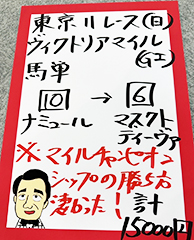 東京11レース(日)
ヴィクトリアマイル
(GI)
馬単
10 → 6
ナミュール マスクト
ディーヴァ
※マイルチャンピオン
シップの勝ち方
凄かった！ 計
15000円